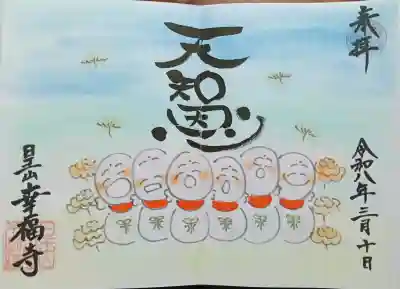 奉拝
令和八年三月十日
天
知
恩
幸福寺